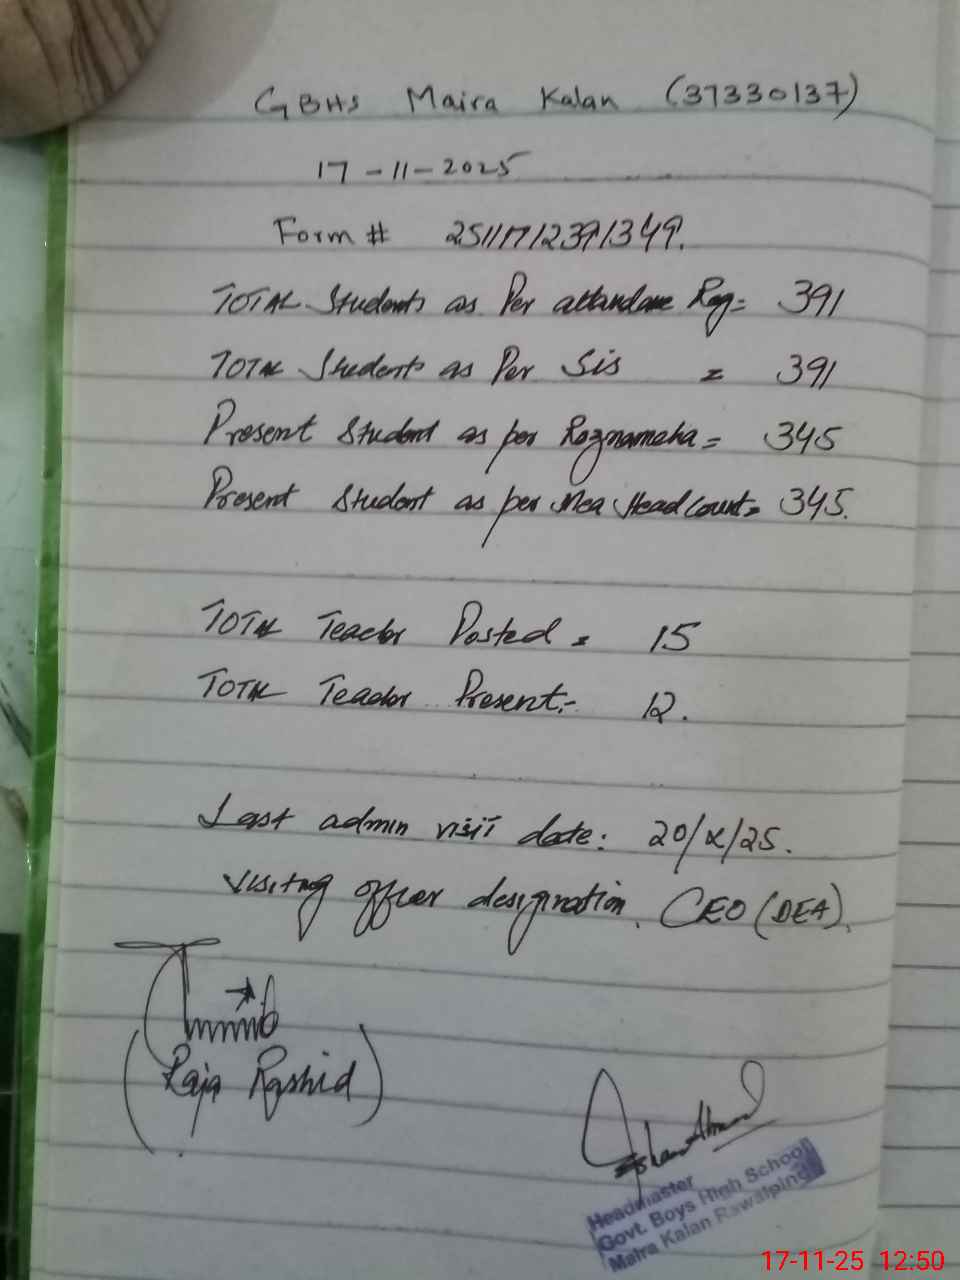 GBHS Maira Kalan (37330137)
17-11-2025
Form # 25111712391349.
TOTAL Students as Per attandane Reg= 391
TOTAL Students as Per Sis = 391
Present Student as per Roznamcha = 345
Present Student as per Mea Head Count= 345.
TOTAL Teacher Posted = 15
TOTAL Teacher Present:- 12.
Last admin visit date: 20/X/25.
Visiting officer designation. CEO (DEA).
(Raja Rashid)
Headmaster
Govt. Boys High School
Maira Kalan Rawalpindi
17-11-25 12:50